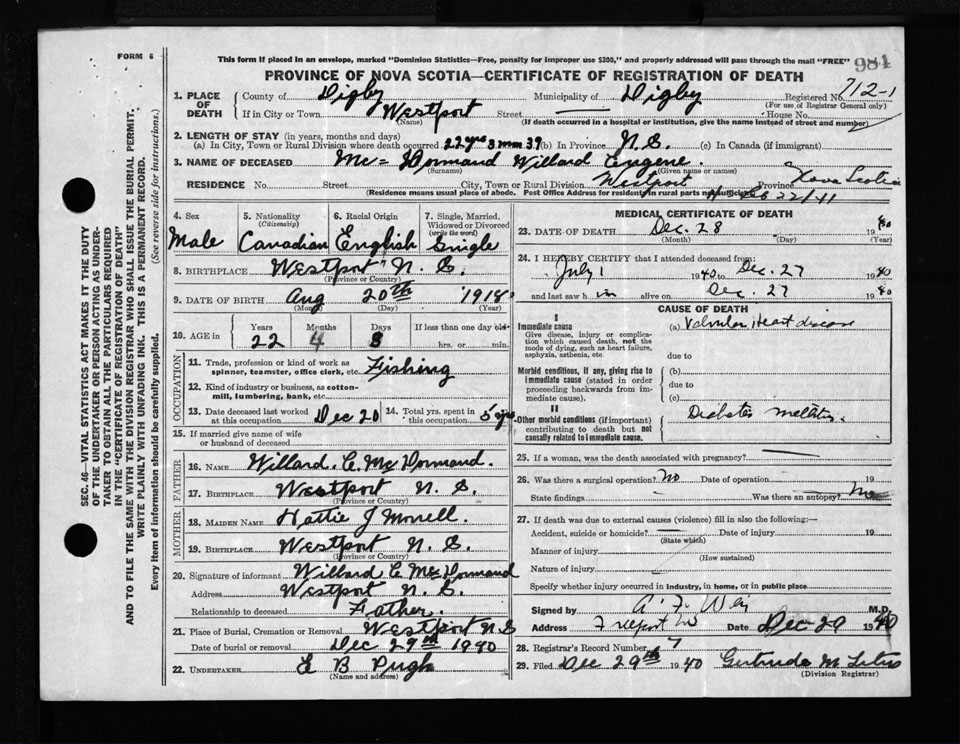 FORM 6
This form if placed in an envelope, marked "Dominion Statistics—Free, penalty for improper use $300," and properly addressed will pass through the mail "FREE"
984
PROVINCE OF NOVA SCOTIA—CERTIFICATE OF REGISTRATION OF DEATH
712-1
1. PLACE OF DEATH County of Digby Municipality of Digby Registered No.
(For use of Registrar General only)
If in City or Town Westport Street House No.
(Name) (If death occurred in a hospital or institution, give the name instead of street and number)
2. LENGTH OF STAY (in years, months and days)
(a) In City, Town or Rural Division where death occurred 22 yrs 3 mm (b) In Province N. S. (c) In Canada (if immigrant)
3. NAME OF DECEASED Mc=Dormand Willard Eugene.
(Surname) (Given name or names)
RESIDENCE No. Street City, Town or Rural Division Westport Province Nova Scotia
(Residence means usual place of abode. Post Office Address not sufficient for resident in rural parts) 22/41
4. Sex 5. Nationality (Citizenship) 6. Racial Origin 7. Single, Married, Widowed or Divorced (write the word)
Male Canadian English Single
8. BIRTHPLACE Westport N. S.
(Province or Country)
9. DATE OF BIRTH Aug 20th 1918
(Month) (Day) (Year)
10. AGE in Years Months Days If less than one day old
22 4 8 hrs. or min.
OCCUPATION
11. Trade, profession or kind of work as spinner, teamster, office clerk, etc. Fishing
12. Kind of industry or business, as cotton-mill, lumbering, bank, etc.
13. Date deceased last worked at this occupation Dec 20 14. Total yrs. spent in this occupation 5 yrs
15. If married give name of wife or husband of deceased
FATHER
16. NAME Willard. E. Mc Dormand.
17. BIRTHPLACE Westport N. S.
(Province or Country)
MOTHER
18. MAIDEN NAME Hattie J Morrell.
19. BIRTHPLACE Westport N. S.
(Province or Country)
20. Signature of informant Willard E Mc Dormand
Address Westport N. S.
Relationship to deceased Father.
21. Place of Burial, Cremation or Removal Westport N S
Date of burial or removal Dec 29th 1940
22. UNDERTAKER E B Pugh
(Name and address)
MEDICAL CERTIFICATE OF DEATH
23. DATE OF DEATH Dec. 28 1940
(Month) (Day) (Year)
24. I HEREBY CERTIFY that I attended deceased from:
July 1 1940 to Dec. 27 1940
and last saw him alive on Dec. 27 1940
CAUSE OF DEATH
I
Immediate cause
Give disease, injury or complication which caused death, not the mode of dying, such as heart failure, asphyxia, asthenia, etc.
(a) Valvular Heart disease
due to
Morbid conditions, if any, giving rise to immediate cause (stated in order proceeding backwards from immediate cause).
(b)
due to
(c)
II
Other morbid conditions (if important) contributing to death but not causally related to immediate cause.
Diabetes mellitus.
25. If a woman, was the death associated with pregnancy?
26. Was there a surgical operation? No Date of operation 19
State findings Was there an autopsy? No
27. If death was due to external causes (violence) fill in also the following:—
Accident, suicide or homicide? Date of injury 19
(State which)
Manner of injury
(How sustained)
Nature of injury
Specify whether injury occurred in industry, in home, or in public place
Signed by A. F. Weir M.D.
Address Freeport NS Date Dec 29 1940
28. Registrar's Record Number 7
29. Filed Dec 29th 1940 Gertrude M
(Division Registrar)
SEC. 46—VITAL STATISTICS ACT MAKES IT THE DUTY
OF THE UNDERTAKER OR PERSON ACTING AS UNDER-
TAKER TO OBTAIN ALL THE PARTICULARS REQUIRED
IN THE "CERTIFICATE OF REGISTRATION OF DEATH"
AND TO FILE THE SAME WITH THE DIVISION REGISTRAR WHO SHALL ISSUE THE BURIAL PERMIT.
WRITE PLAINLY WITH UNFADING INK. THIS IS A PERMANENT RECORD.
Every item of information should be carefully supplied. (See reverse side for instructions.)